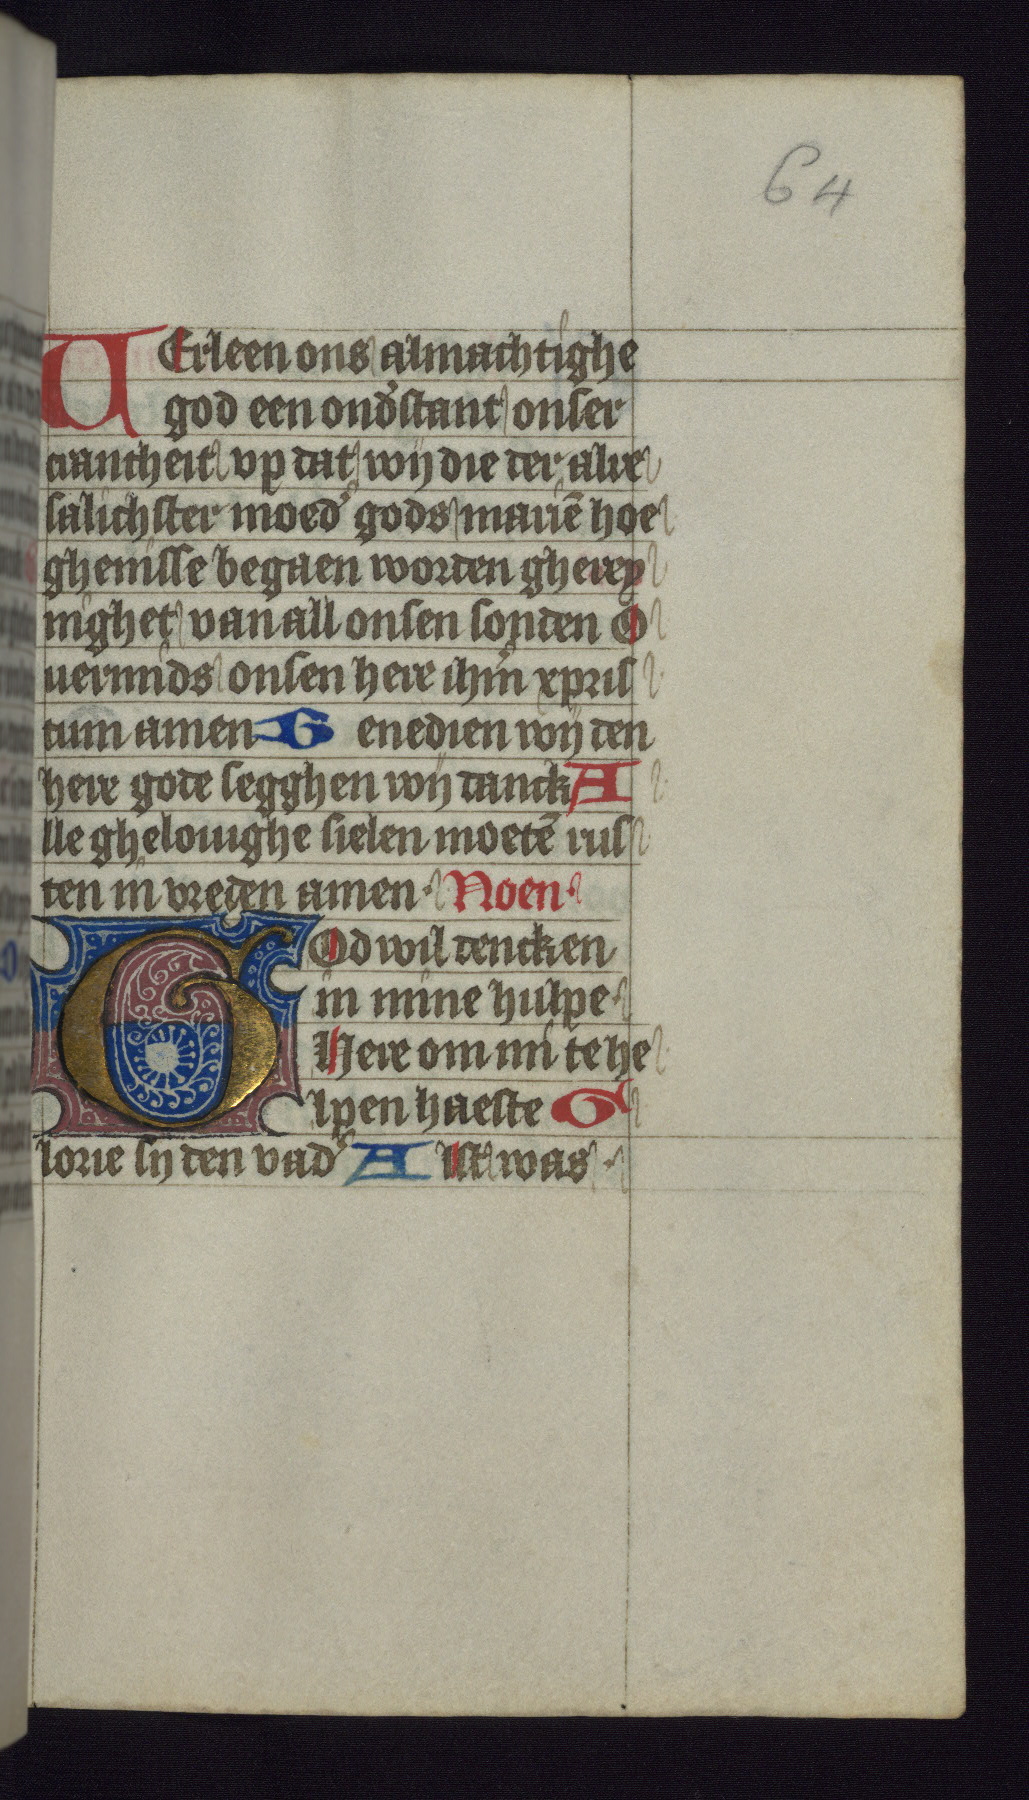 64
VErleen ons almachtighe
god een ond̕stant onser
crancheit vp dat wij die der alre
salichster moed̕ gods mariē hoe
ghenisse begaen worden gherey
nighet van all onsen sonden O
uermids onsen here ihm̄ xpris
tum amen Genedien wij den
here gode segghen wij danck A
lle ghelouighe sielen moetē rus
ten in vreden amen. Noen.
GOd wil dencken
in mine hulpe.
Here om mi te he
lpen haeste G
lorie sij den vad̕ Alst was.